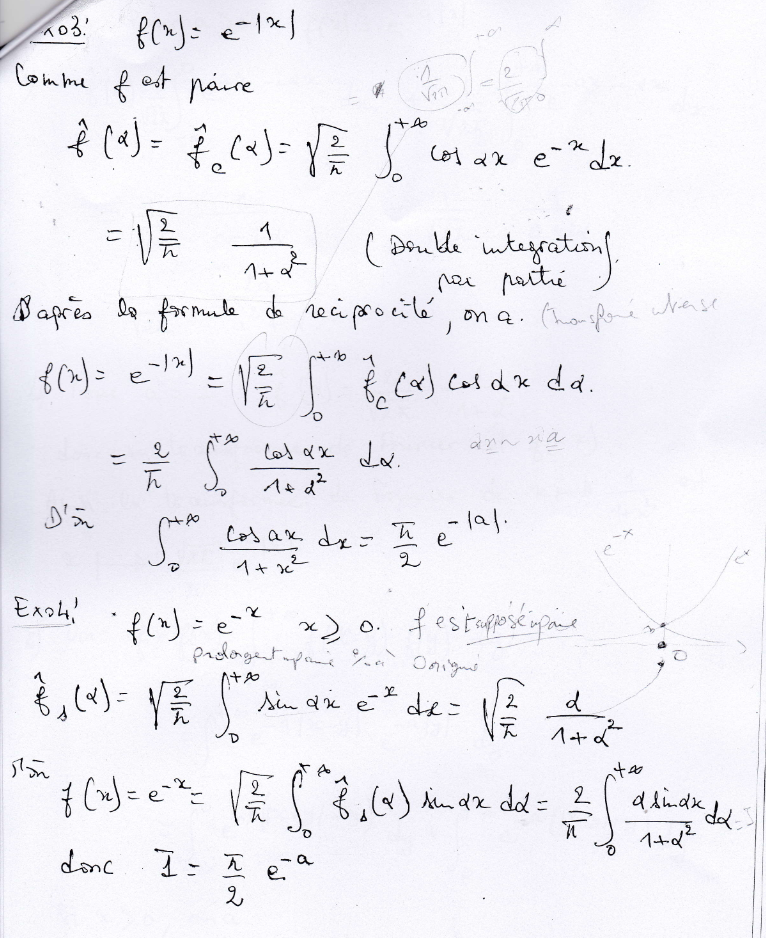 xo3: f(x) = e^{-|x|}
Comme f est paire
f̂(α) = f̂_c(α) = √(2/π) ∫_0^{+∞} cos αx e^{-x} dx.
= √(2/π) 1/(1+α²) (Double integration par partie)
D'après la formule de reciprocité, on a. (transformé inverse
f(x) = e^{-|x|} = √(2/π) ∫_0^{+∞} f̂_c(α) cos αx dα.
= 2/π ∫_0^{+∞} cos αx/(1+α²) dα.
D'où ∫_0^{+∞} cos ax/(1+x²) dx = π/2 e^{-|a|}.
Exo4: f(x) = e^{-x} x ⩾ 0. f est supposé impaire
f̂_s(α) = √(2/π) ∫_0^{+∞} sin αx e^{-x} dx = √(2/π) α/(1+α²)
D'où f(x) = e^{-x} = √(2/π) ∫_0^{+∞} f̂_s(α) sin αx dα = 2/π ∫_0^{+∞} α sin αx/(1+α²) dα
donc I = π/2 e^{-a}
e^{-x}
e^x
0